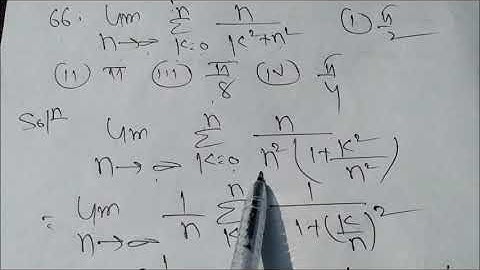 66. lim n→∞ n Σ k=0 n/(k²+n²) (i) π/2
(ii) π (iii) π/8 (iv) π/4
Solⁿ
lim n→∞ n Σ k=0 n/(n²(1+k²/n²))
= lim n→∞ 1/n n Σ k 1/(1+(k/n)²)